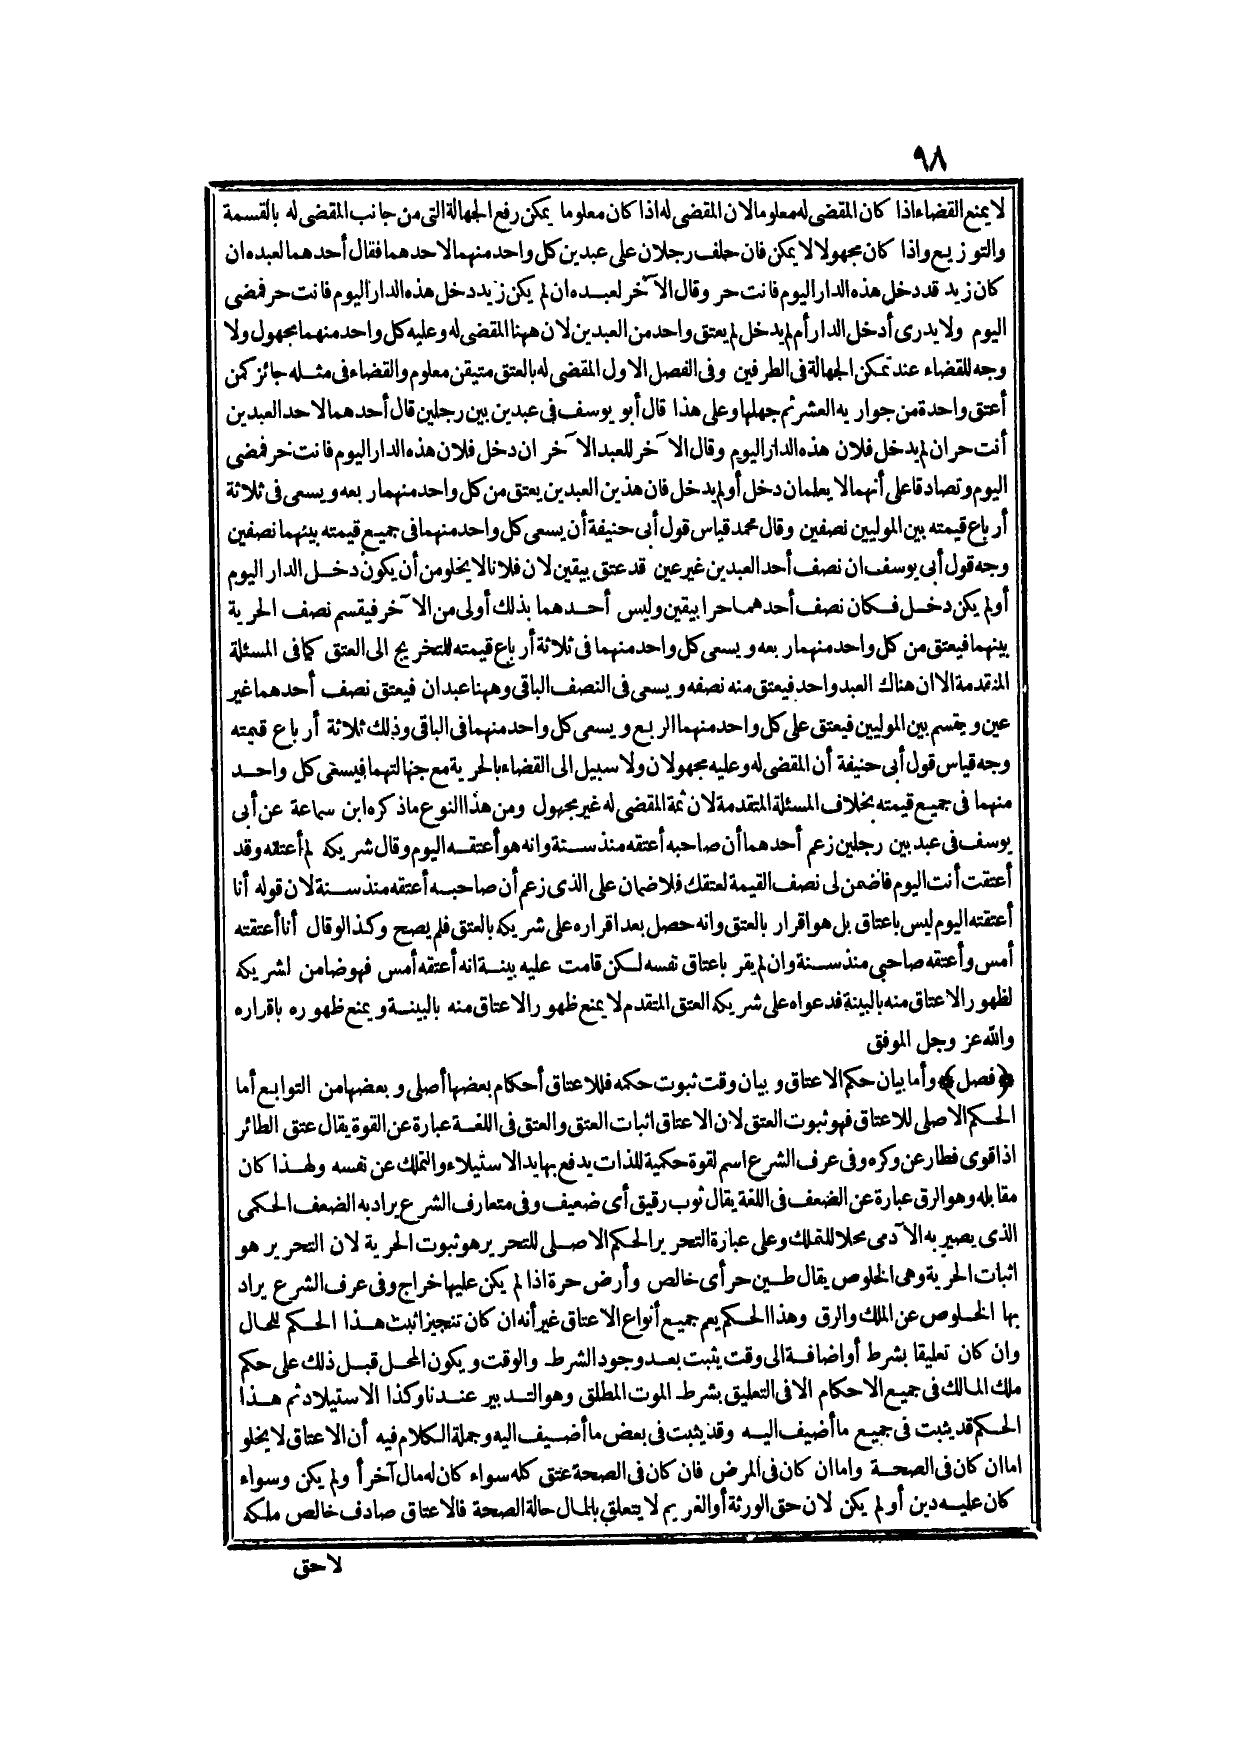 ٩٨
لا يمنع القضاء اذا كان المقضى له معلوما لان المقضى له اذا كان معلوما يمكن رفع الجهالة التى من جانب المقضى له بالقسمة
والتوزيع واذا كان مجهولا لا يمكن فان حلف رجلان على عبدين كل واحد منهما لاحدهما فقال أحدهما لعبده ان
كان زيد قد دخل هذه الدار اليوم فانت حر وقال الآخر لعبده ان لم يكن زيد دخل هذه الدار اليوم فانت حر فمضى
اليوم ولا يدرى أدخل الدار أم لم يدخل لم يعتق واحد من العبدين لان ههنا المقضى له وعليه كل واحد منهما مجهول ولا
وجه للقضاء عند تمكن الجهالة فى الطرفين وفى الفصل الاول المقضى له بالعتق متيقن معلوم والقضاء فى مثله جائز كمن
أعتق واحدة من جواريه العشر ثم جهلها وعلى هذا قال أبو يوسف فى عبدين بين رجلين قال أحدهما لاحد العبدين
أنت حر ان لم يدخل فلان هذه الدار اليوم وقال الآخر للعبد الآخر ان دخل فلان هذه الدار اليوم فانت حر فمضى
اليوم وتصادقا على أنهما لا يعلمان دخل أو لم يدخل فان هذين العبدين يعتق من كل واحد منهما ربعه ويسعى فى ثلاثة
أرباع قيمته بين الموليين نصفين وقال محمد قياس قول أبى حنيفة أن يسعى كل واحد منهما فى جميع قيمته بينهما نصفين
وجه قول أبى يوسف ان نصف أحد العبدين غير عين قد عتق بيقين لان فلانا لا يخلو من أن يكون دخل الدار اليوم
أو لم يكن دخل فكان نصف أحدهما حرا بيقين وليس أحدهما بذلك أولى من الآخر فيقسم نصف الحرية
بينهما فيعتق من كل واحد منهما ربعه ويسعى كل واحد منهما فى ثلاثة أرباع قيمته للتخريج الى العتق كما فى المسئلة
المتقدمة الا ان هناك العبد واحد فيعتق منه نصفه ويسعى فى النصف الباقى وههنا عبدان فيعتق نصف أحدهما غير
عين ويقسم بين الموليين فيعتق على كل واحد منهما الربع ويسعى كل واحد منهما فى الباقى وذلك ثلاثة أرباع قيمته
وجه قياس قول أبى حنيفة أن المقضى له وعليه مجهولان ولا سبيل الى القضاء بالحرية مع جهالتهما فيسعى كل واحد
منهما فى جميع قيمته بخلاف المسئلة المتقدمة لان ثمة المقضى له غير مجهول ومن هذا النوع ما ذكره ابن سماعة عن أبى
يوسف فى عبد بين رجلين زعم أحدهما أن صاحبه أعتقه منذ سنة وانه هو أعتقه اليوم وقال شريكه لم أعتقه وقد
أعتقت أنت اليوم فاضمن لى نصف القيمة لعتقك فلا ضمان على الذى زعم أن صاحبه أعتقه منذ سنة لان قوله أنا
أعتقته اليوم ليس باعتاق بل هو اقرار بالعتق وانه حصل بعد اقراره على شريكه بالعتق فلم يصح وكذا لو قال أنا أعتقته
أمس وأعتقه صاحبى منذ سنة وان لم يقر باعتاق نفسه لكن قامت عليه بينة انه أعتقه أمس فهو ضامن لشريكه
لظهور الاعتاق منه بالبينة فدعواه على شريكه العتق المتقدم لا يمنع ظهور الاعتاق منه بالبينة ويمنع ظهوره باقراره
والله عز وجل الموفق
﴿فصل﴾ وأما بيان حكم الاعتاق وبيان وقت ثبوت حكمه فللاعتاق أحكام بعضها أصلى وبعضها من التوابع أما
الحكم الاصلى للاعتاق فهو ثبوت العتق لان الاعتاق اثبات العتق والعتق فى اللغة عبارة عن القوة يقال عتق الطائر
اذا قوى فطار عن وكره وفى عرف الشرع اسم لقوة حكمية للذات يدفع بها يد الاستيلاء والتملك عن نفسه ولهذا كان
مقابله وهو الرق عبارة عن الضعف فى اللغة يقال ثوب رقيق أى ضعيف وفى متعارف الشرع يراد به الضعف الحكمى
الذى يصير به الآدمى محلا للتملك وعلى عبارة التحرير الحكم الاصلى للتحرير هو ثبوت الحرية لان التحرير هو
اثبات الحرية وهى الخلوص يقال طين حر أى خالص وأرض حرة اذا لم يكن عليها خراج وفى عرف الشرع يراد
بها الخلوص عن الملك والرق وهذا الحكم يعم جميع أنواع الاعتاق غير أنه ان كان تنجيزا ثبت هذا الحكم للحال
وان كان تعليقا بشرط أو اضافة الى وقت يثبت بعد وجود الشرط والوقت ويكون المحل قبل ذلك على حكم
ملك المالك فى جميع الاحكام الا فى التعليق بشرط الموت المطلق وهو التدبير عندنا وكذا الاستيلاد ثم هذا
الحكم قد يثبت فى جميع ما أضيف اليه وقد يثبت فى بعض ما أضيف اليه وجملة الكلام فيه أن الاعتاق لا يخلو
اما ان كان فى الصحة واما ان كان فى المرض فان كان فى الصحة عتق كله سواء كان له مال آخر أو لم يكن وسواء
كان عليه دين أو لم يكن لان حق الورثة أو الغريم لا يتعلق بالمال حالة الصحة فالاعتاق صادف خالص ملكه
لاحق